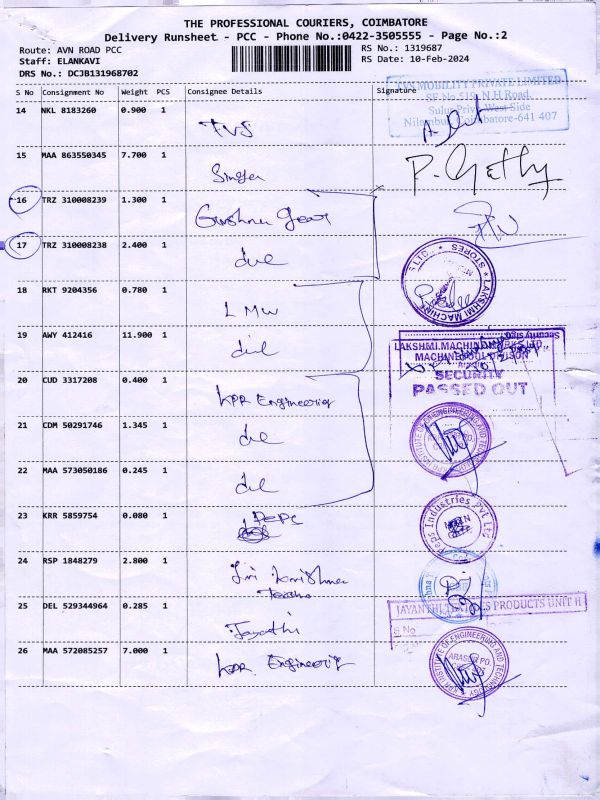 THE PROFESSIONAL COURIERS, COIMBATORE
Delivery Runsheet - PCC - Phone No.:0422-3505555 - Page No.:2
Route: AVN ROAD PCC RS No.: 1319687
Staff: ELANKAVI RS Date: 10-Feb-2024
DRS No.: DCJB131968702
S No Consignment No Weight PCS Consignee Details Signature
TVS MOBILITY PRIVATE LIMITED
SF No 519, N.H Road,
Sulur Privu West Side
Nilambur, Coimbatore-641 407
14 NKL 8183260 0.900 1 TVS
15 MAA 863550345 7.700 1 Singer P. Gethy
16 TRZ 310008239 1.300 1
17 TRZ 310008238 2.400 1
LAKSHMI MACHINE
STORES
18 RKT 9204356 0.780 1 LMW
19 AWY 412416 11.900 1
LAKSHMI MACHINE WORKS LTD.
MACHINE TOOL DIVISION
SECURITY
PASSED OUT
Security Sign
20 CUD 3317208 0.400 1 KPR Engineering
21 CDM 50291746 1.345 1
KPR INSTITUTE OF ENGINEERING AND TECHNOLOGY
22 MAA 573050186 0.245 1
23 KRR 5859754 0.080 1 PEPC
Peps Industries Pvt Ltd
24 RSP 1848279 2.800 1 Sri Krishna
25 DEL 529344964 0.285 1 Jayanthi
JAYANTHI TEXTILES PRODUCTS UNIT II
S.No
26 MAA 572085257 7.000 1 KPR Engineering
KPR INSTITUTE OF ENGINEERING AND TECHNOLOGY
ARASUR PO.